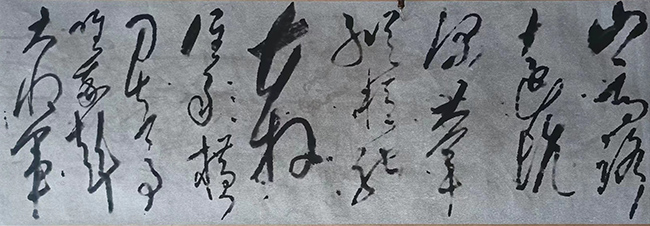 山高路
远坑
深大军
纵横驰
奔
谁敢横
刀立马
唯我彭
大将军